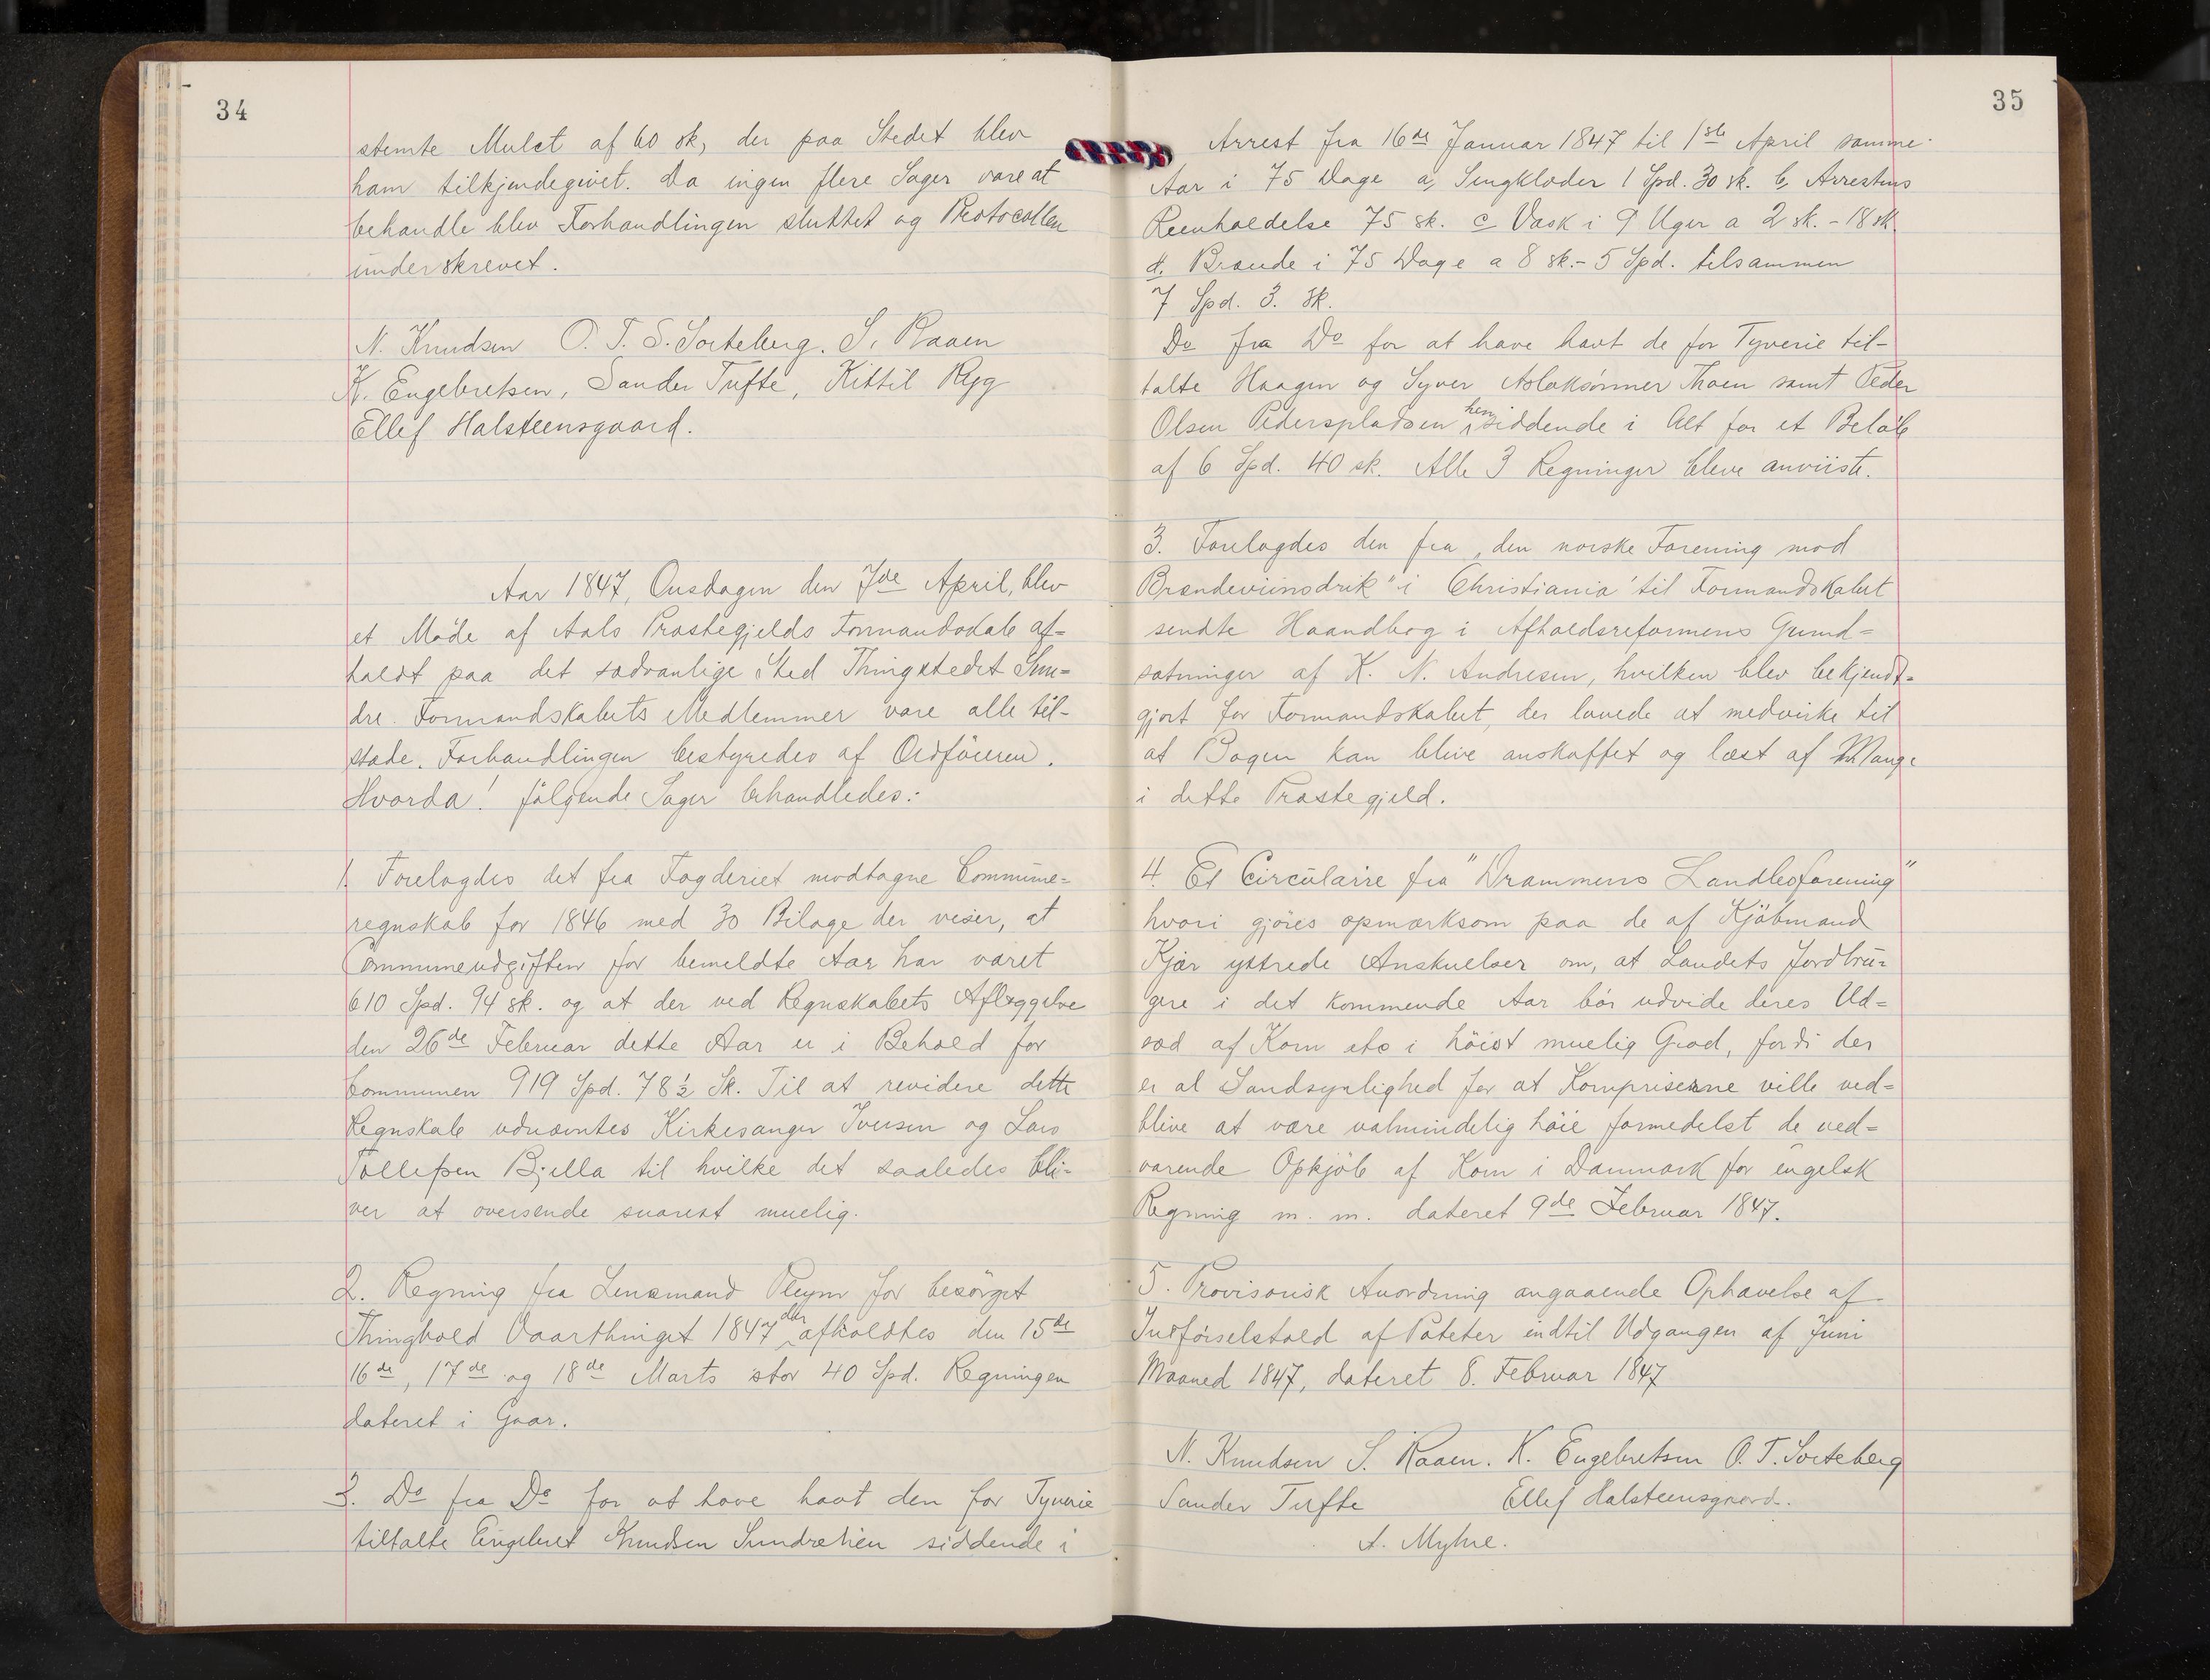 34
stemte Mulct af 60 sk, der paa Stedet blev
ham tilkjendegivet. Da ingen flere Sager vare at
behandle blev Forhandlingen sluttet og Protocollen
underskrevet.
N. Knudsen O. T. S. Sorteberg. S. Raaen
K. Engebretsen, Sander Tufte, Kittil Ryg
Ellef Halsteensgaard.
Aar 1847, Onsdagen den 7de April, blev
et Møde af Aals Præstegjelds Formandskab af=
holdt paa det sædvanlige Sted Thingstedet Sun=
dre. Formandskabets Medlemmer vare alle til-
stæde. Forhandlingen bestyredes af Ordføreren.
Hvorda! følgende Sager behandledes:
1. Forelagdes det fra Fogderiet modtagne Commune=
regnskab for 1846 med 30 Bilage der viser, at
Communeudgiften for bemeldte Aar har været
610 Spd. 94 sk. og at der ved Regnskabets Aflæggelse
den 26de Februar dette Aar er i Behold for
Communen 919 Spd. 78 ½ Sk. Til at revidere dette
Regnskab udnævntes Kirkesanger Iversen og Lars
Tollefsen Bjella til hvilke det saaledes bli=
ver at oversende snarest muelig.
2. Regning fra Lensmand Pleym for besørget
Thinghold Vaarthinget 1847 der afholdtes den 15de
16de, 17de og 18de Marts stor 40 Spd. Regningen
dateret i Gaar.
3. Do fra Do for at have havt den for Tyverie
tiltalte Engebret Knudsen Sundrehien siddende i
35
Arrest fra 16de Januar 1847 til 1ste April samme
Aar i 75 Dage a, Sengklæder 1 Spd. 30 sk. b, Arrestens
Reenholdelse 75 sk. c Vask i 9 Uger a 2 sk. - 18 sk.
d. Brænde i 75 Dage a 8 sk.- 5 Spd. tilsammen
7 Spd. 3. sk.
Do fra Do for at have havt de for Tyverie til-
talte Haagen og Syver Aslaksønner Thoen samt Peder
Olsen Pederspladsen hensiddende i Alt for et Beløb
af 6 Spd. 40 sk. Alle 3 Regninger bleve anviiste.
3. Forelagdes den fra „den norske Forening mod
Brændeviinsdrik" i Christiania til Formandskabet
sendte Haandbog i Afholdsreformens Grund=
sætninger af K. N. Andresen, hvilken blev bekjendt=
gjort for Formandskabet, der lovede at medvirke til
at Bogen kan blive anskaffet og læst af Mange
i dette Præstegjeld.
4. Et Circulaire fra "Drammens Landboforening"
hvori gjøres opmærksom paa de af Kjøbmand
Kjær yttrede Anskuelser om, at Landets Jordbru=
gere i det kommende Aar bør udvide deres Ud=
sæd af Korn etc i høist muelig Grad, fordi der
er al Sandsynlighed for at Kornpriserne ville ved=
blive at være ualmindelig høie formedelst de ved=
varende Opkjøb af Korn i Danmark for engelsk
Regning m. m. dateret 9de Februar 1847.
5. Provisorisk Anordning angaaende Ophævelse af
Indførselstold af Poteter indtil Udgangen af Juni
Maaned 1847, dateret 8. Februar 1847
N. Knudsen S. Raaen. K. Engebretsen O. T. Sorteberg
Sander Tufte Ellef Halsteensgaard.
A. Myhre.